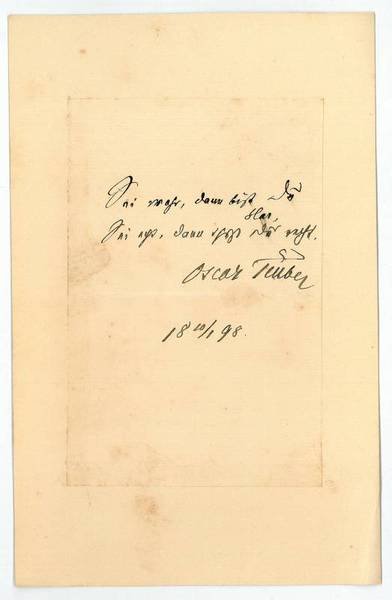 Sei wahr, dann bist Du
klar,
Sei echt, dann Du recht.
Oscar Teuber
18 20/1 98.